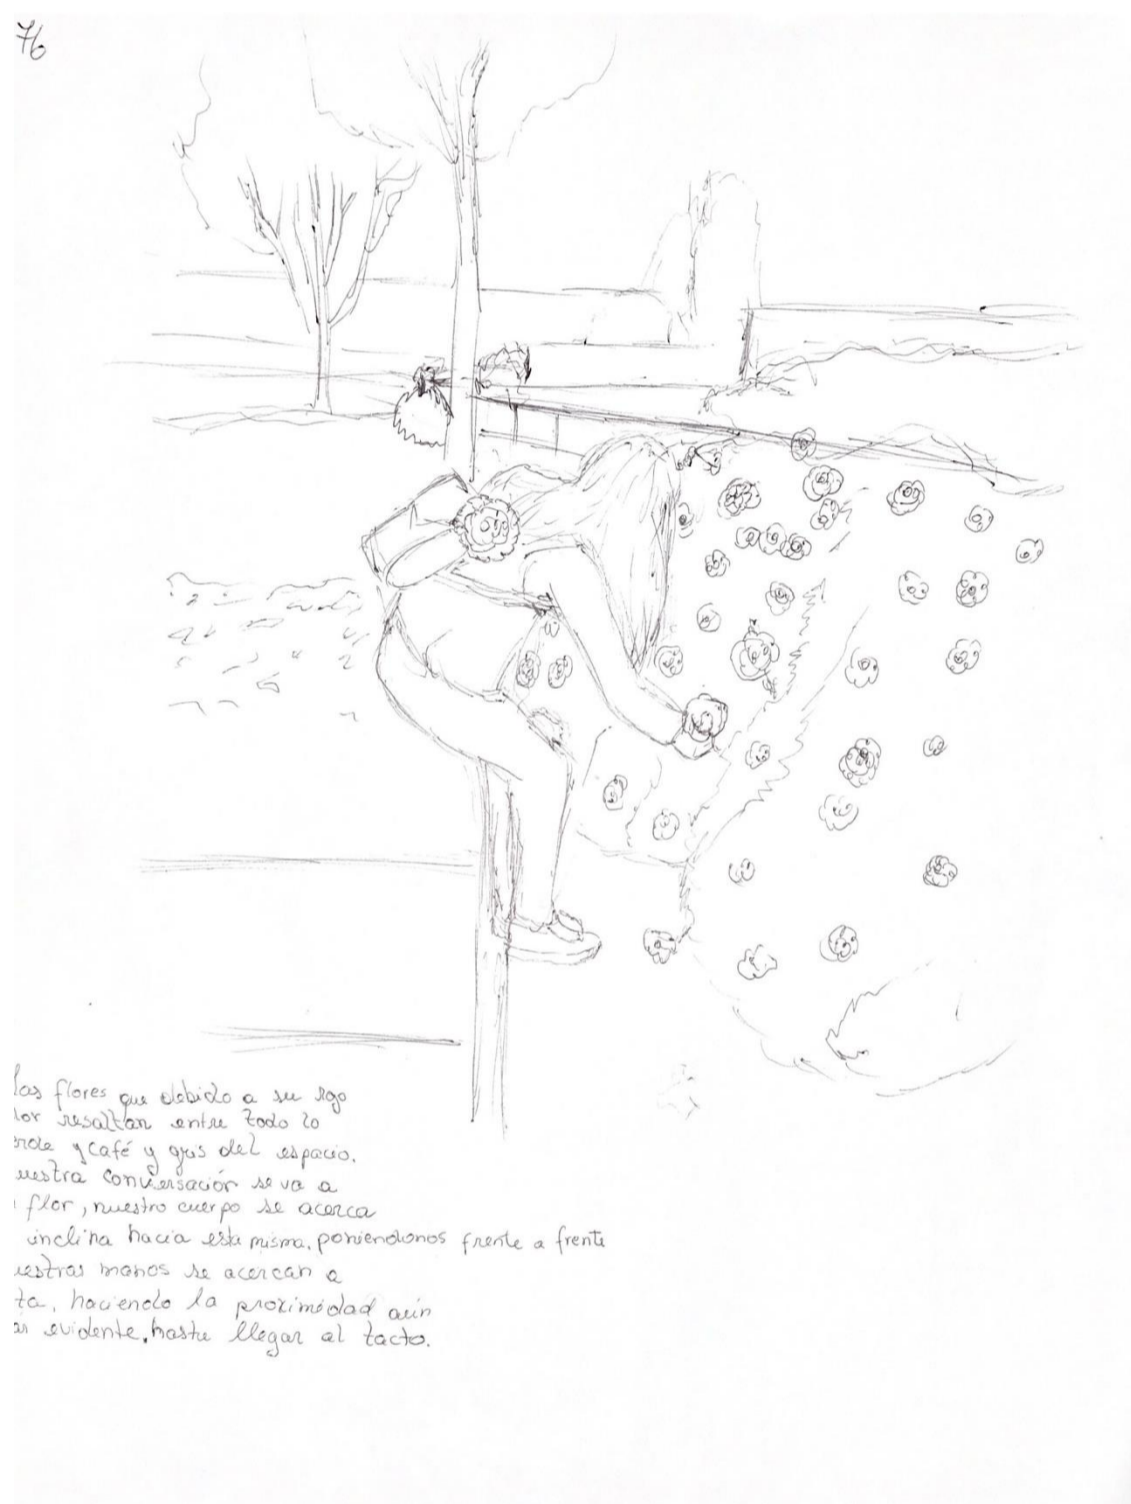 76
las flores que debido a su rojo
lor resaltan entre todo lo
erde y café y gris del espacio.
uestra conversación se va a
flor, nuestro cuerpo se acerca
inclina hacia esta misma, poniendonos frente a frente
uestras manos se acercan a
ta, haciendo la proximidad aún
as evidente, hasta llegar al tacto.